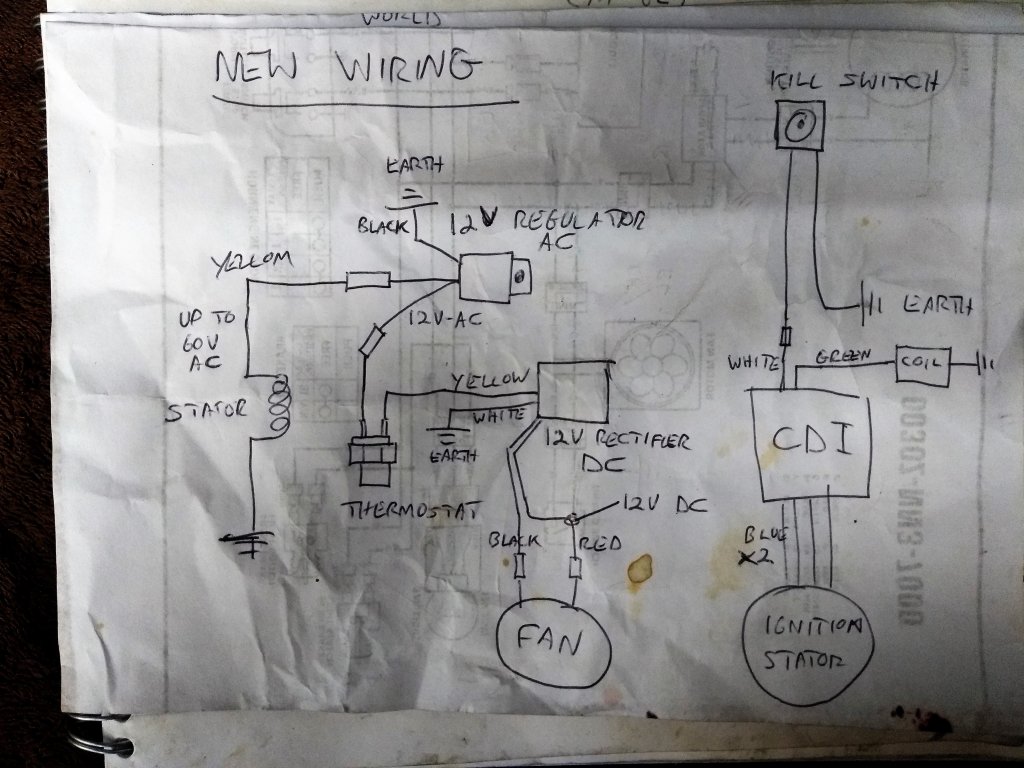 WORLD
NEW WIRING
KILL SWITCH
EARTH
BLACK
12V REGULATOR
AC
YELLOW
12V-AC
UP TO
60V
AC
STATOR
EARTH
WHITE
GREEN
COIL
YELLOW
WHITE
EARTH
12V RECTIFIER
DC
CDI
THERMOSTAT
12V DC
BLACK
RED
BLUE
X2
FAN
IGNITION
STATOR
00302-NN3-7000